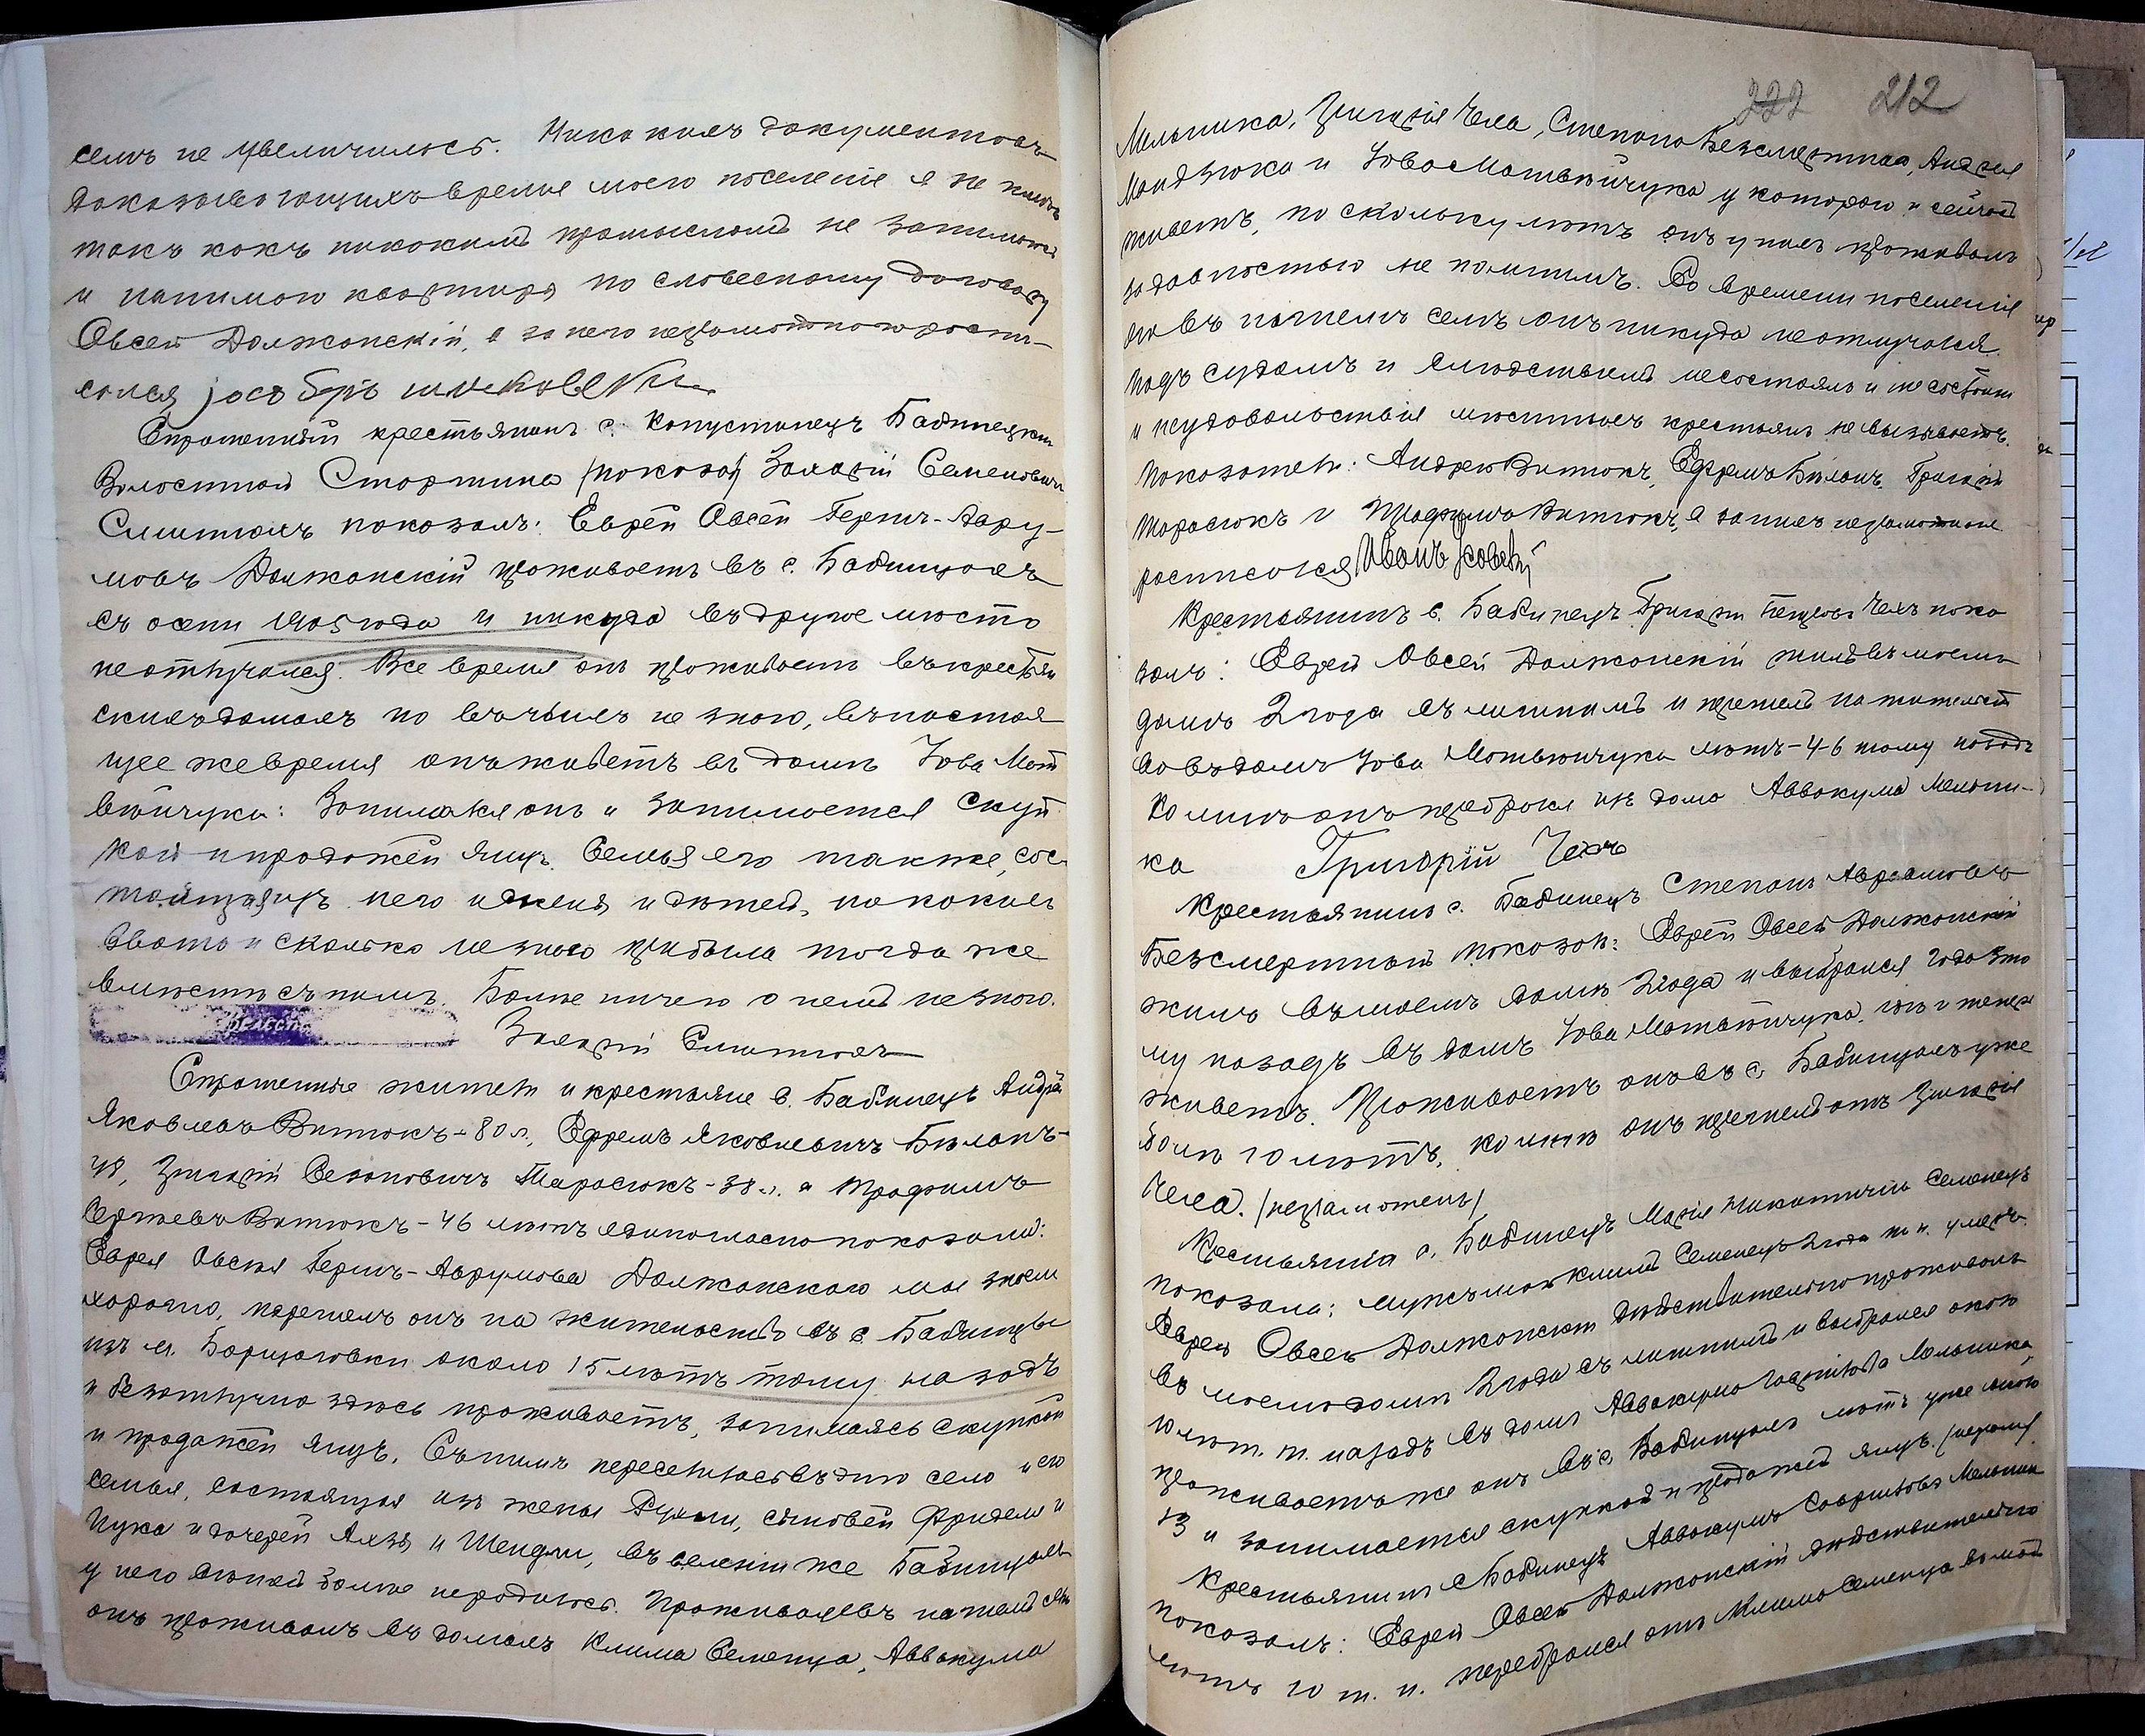 семъ не увеличилось. Никакихъ документовъ
доказывающихъ время моего поселенія я не имѣю
такъ какъ никакимъ промысломъ не занимаюсь
и нанимаю квартиру по словесному договору
Овсей Должанскій, а за него неграмотного распи-
сался
Спрошенный крестьянинъ с. Капустинецъ Бабинецкій
Волостной Старшина Захарій Семеновичъ
показалъ: Еврей Овсей Гершъ-Авру-
мовъ Должанскій проживаетъ въ с. Бабинцахъ
съ осени 1905 года и никуда въ другое мѣсто
не отлучался. Все время онъ проживаетъ въ крестьян
скихъ домахъ но въ чьихъ не знаю, въ настоя
щее же время онъ живетъ въ домѣ Іова Мат
вѣйчука: Занимался онъ и занимается скуп
кой и продажей яицъ. Семья его также, сос-
тоящая изъ него и жены и дѣтей, но какихъ
и сколько не знаю прибыла тогда же
вмѣстѣ съ нимъ. Болѣе ничего о немъ не знаю.
Захарій
Спрошенные жители и крестьяне с. Бабинецъ Андрей
Яковлевъ Витюкъ - 80 л., Ефремъ Яковлевичъ Биланъ-
48, Григорій Тарасюкъ - 38 л. и Трофимъ
Сергѣевъ Витюкъ - 46 лѣтъ единогласно показали:
Еврея Овсея Гершъ-Аврумова Должанскаго мы знаемъ
хорошо, перешелъ онъ на жительство въ с. Бабинцы
изъ м. Борщаговки около 15 лѣтъ тому назадъ
и безотлучно здѣсь проживаетъ, занимаясь скупкой
и продажей яицъ. Съ нимъ переселилось въ это село и его
семья, состоящая изъ жены Рухли, сыновей Фриделя и
и дочерей и Шендли, въ селеніи же Бабинцахъ
у него дѣтей болѣе не родилось. Проживая въ нашемъ селѣ
онъ проживалъ въ домахъ Клима Семенца, Аввакума
222 212
Мельника, Григорія Чеха, Степана Безсмертнаго, Андрея
Мандзюка и Іова Матвѣйчука у котораго и сейчасъ
живетъ, по скольку лѣтъ онъ у нихъ проживалъ
за давностью не помнимъ. Со времени поселенія
его въ нашемъ селѣ онъ никуда не отлучался.
подъ судомъ и слѣдствіемъ не состоялъ и не состоитъ
и неудовольствія мѣстныхъ крестьянъ не вызываетъ.
Показатели: Андрей Витюкъ, Ефремъ Биланъ, Григорій
Тарасюкъ и Трофимъ Витюкъ, а за нихъ неграмотные
росписался Иванъ
Крестьянинъ с. Бабинецъ Григорій Чехъ пока
залъ: Еврей Овсей Должанскій жилъ въ моемъ
домѣ 2 года съ лишнимъ и перешелъ на жительст
во въ домъ Іова Матвѣйчука лѣтъ - 4-6 тому назадъ
Ко мнѣ онъ перебрался изъ дома Аввакума Мельни-
ка Григорій Чехъ
Крестьянинъ с. Бабинецъ Степанъ
Безсмертный показалъ: Еврей Овсей Должанскій
жилъ въ моемъ домѣ 2 года и выбрался года 3 то
му назадъ въ домъ Іова Матвѣйчука, гдѣ и теперь
живетъ. Проживаетъ онъ въ с. Бабинцахъ уже
болѣе 10 лѣтъ, ко мнѣ онъ перешелъ отъ Григорія
Чеха. /неграмотенъ/
Крестьянка с. Бабинецъ Марія Семенецъ
показала: мужъ мой Климъ Семенецъ 2 года т. н. умеръ.
Еврей Овсей Должанскій дѣйствительно проживалъ
въ моемъ домѣ 2 года съ лишнимъ и выбрался около
10 лѣт. т. назадъ въ домъ Аввакума Мельника,
проживаетъ же онъ въ с. Бабинцахъ лѣтъ уже около
13 и занимается скупкой и продажей яицъ.
Крестьянинъ с. Бабинецъ Аввакумъ Мельникъ
показалъ: Еврей Овсей Должанскій дѣйствительно
лѣтъ 10 т. н. перебрался отъ Клима Семенца въ мой